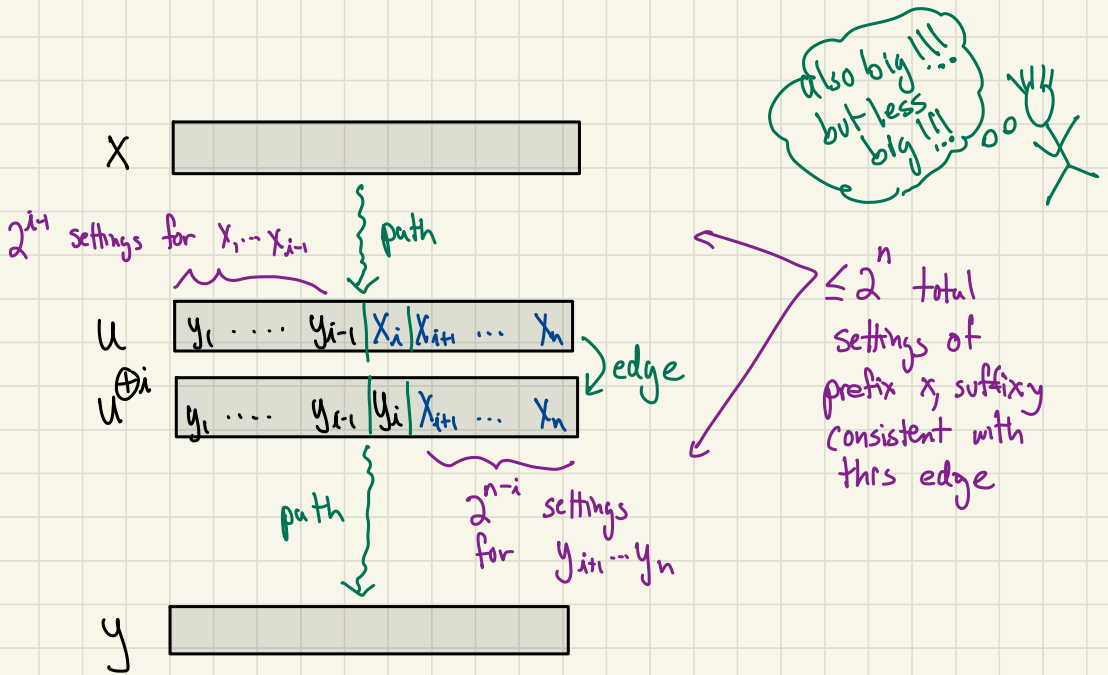 also big!!!
but less
big!!!
X
2^{i-1} settings for X_1 ... X_{i-1}
path
u
y_1 ..... y_{i-1} | X_i | X_{i+1} ... X_n
edge
u^{⊕i}
y_1 ..... y_{i-1} | y_i | X_{i+1} ... X_n
≤ 2^n total
settings of
prefix x, suffix y
consistent with
this edge
path
2^{n-i} settings
for y_{i+1} ... y_n
y